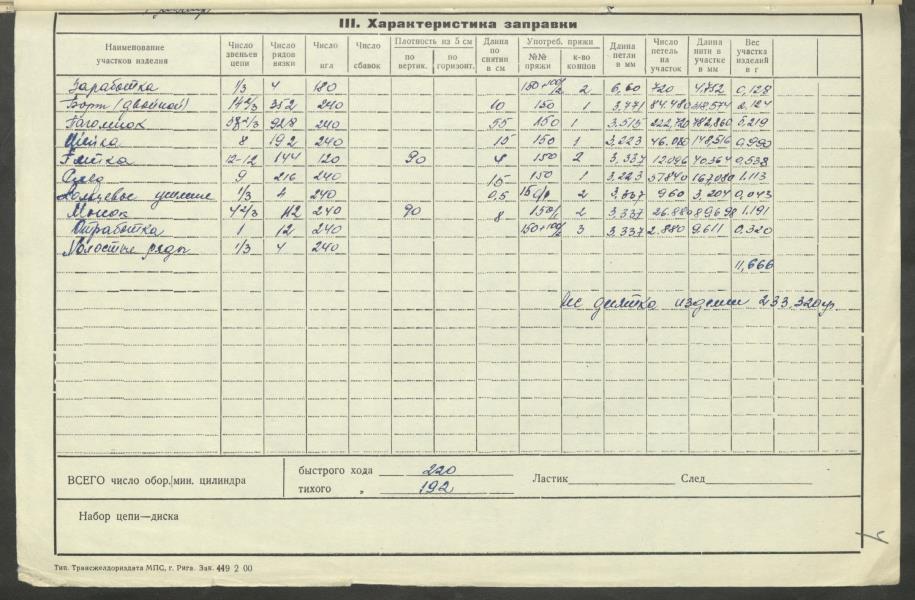 III. Характеристика заправки
Наименование участков изделия | Число звеньев цепи | Число рядов вязки | Число игл | Число сбавок | Плотность на 5 см по вертик. | по горизонт. | Длина по снятии в см | Употреб. пряжи №№ пряжи | к-во концов | Длина петли в мм | Число петель на участок | Длина нити в участке в мм | Вес участка изделий в г
Заработка 1/3 4 180 150+100/2 2 6,60 720 4,752 0,128
Борт (двойной) 14 2/3 352 240 10 150 1 3,771 84.480 318,574 2,124
Паголенок 240 55 150 1 3,515 222,720 782,860 5,219
8 192 240 15 150 1 3,223 46.080 148,516 0,990
Пятка 12-12 144 120 90 4 150 2 3,337 12096 40.364 0,538
След 9 216 240 15 150 1 3,223 51840 167,080 1.113
Кольцевое усиление 1/3 4 240 0,5 2 3,337 960 3,204 0,043
Мысок 4 2/3 112 240 90 8 150/1 2 3,337 26.880 89698 1.191
Отработка 1 12 240 150+100/2 3 3,337 2.880 9.611 0,320
Холостые ряды 1/3 4 240
11,666
Вес десятка изделий 233.320гр.
ВСЕГО число обор./мин. цилиндра
быстрого хода 220
тихого „ 192
Ластик
След
Набор цепи—диска
Тип. Трансжелдориздата МПС, г. Рига. Зак. 449 2 00